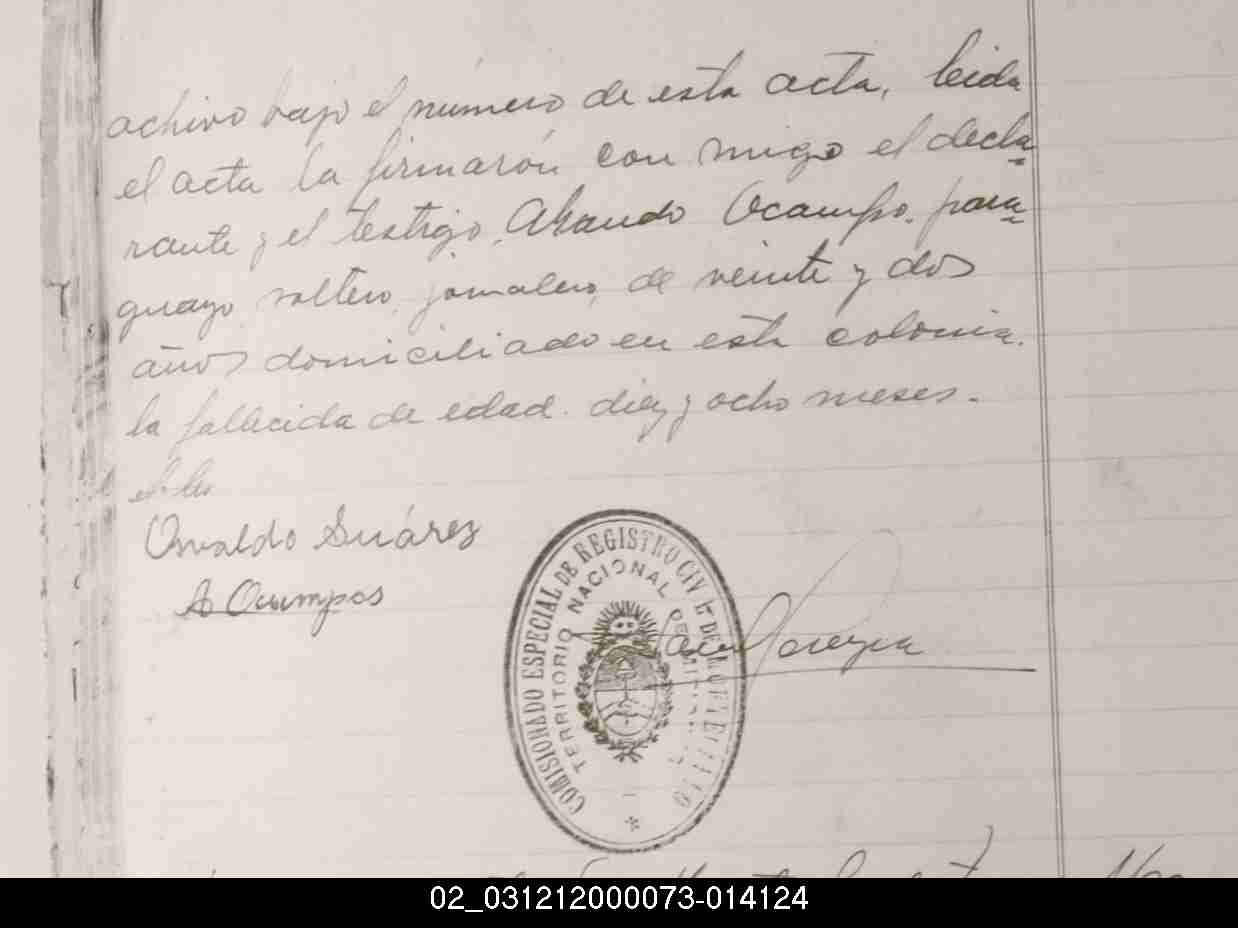 achivo bajo el número de esta acta, leida
el acta la firmarón con migo el decla=
rante y el testigo, Ocampo, para=
guayo soltero, jornalero, de veinte y dos
años domiciliado en esta colonia.
la fallecida de edad. diez y ocho meses.-
Osvaldo Suárez
A Ocampos
COMISIONADO ESPECIAL DE REGISTRO CIVIL DE
TERRITORIO NACIONAL DE MISIONES
02_031212000073-014124